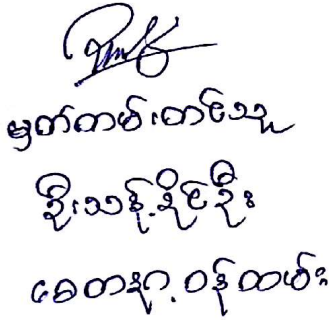 မှတ်တမ်းတင်သူ
ဦးသန့်နိုင်ဦး
စေတနာ့ဝန်ထမ်း